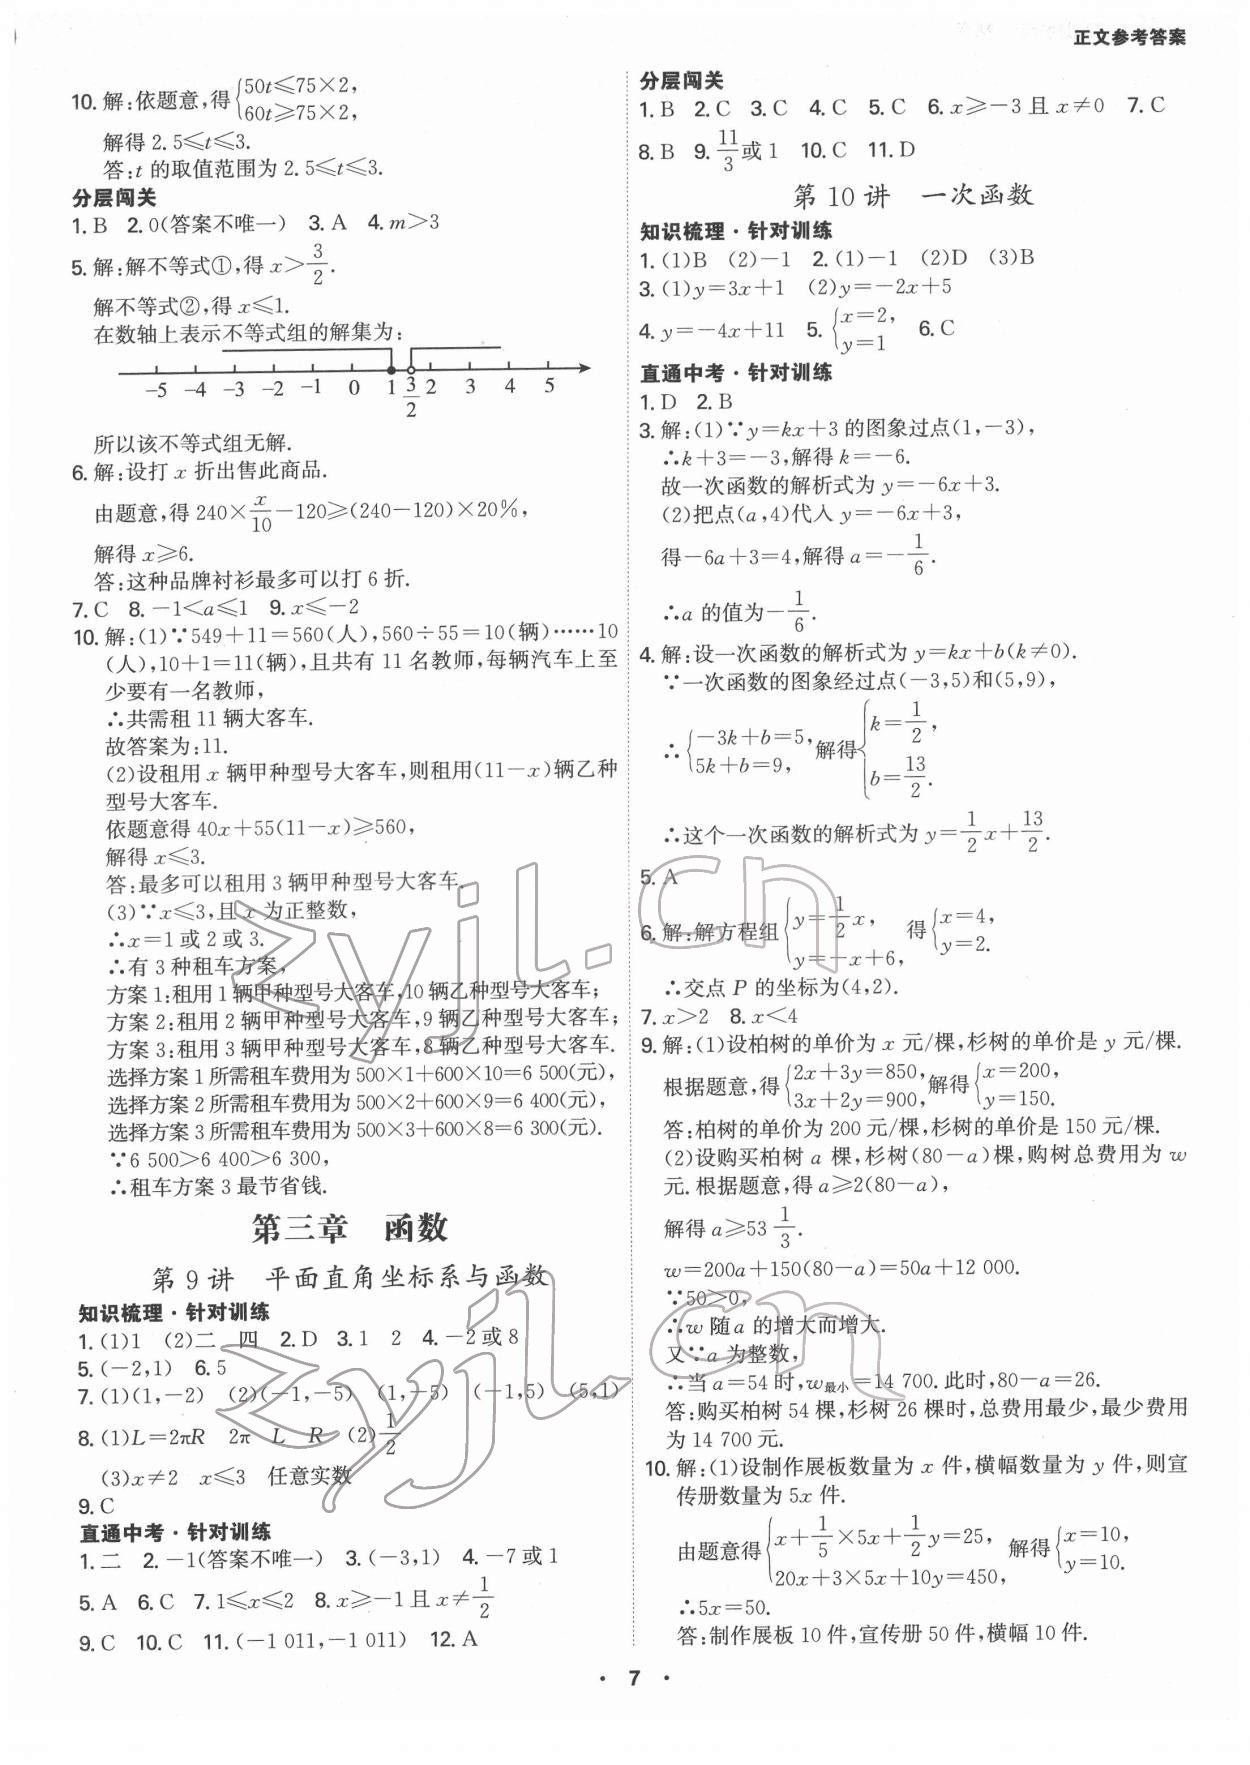 正文参考答案
10. 解:依题意,得{50t≤75×2,
60t≥75×2,
解得 2.5≤t≤3.
答:t 的取值范围为 2.5≤t≤3.
分层闯关
1. B 2. 0(答案不唯一) 3. A 4. m>3
5. 解:解不等式①,得 x>3/2.
解不等式②,得 x≤1.
在数轴上表示不等式组的解集为:
-5 -4 -3 -2 -1 0 1 3/2 2 3 4 5
所以该不等式组无解.
6. 解:设打 x 折出售此商品.
由题意,得 240×x/10-120≥(240-120)×20%,
解得 x≥6.
答:这种品牌衬衫最多可以打 6 折.
7. C 8. -1<a≤1 9. x≤-2
10. 解:(1)∵549+11=560(人),560÷55=10(辆)……10
(人),10+1=11(辆),且共有 11 名教师,每辆汽车上至
少要有一名教师,
∴共需租 11 辆大客车.
故答案为:11.
(2)设租用 x 辆甲种型号大客车,则租用(11-x)辆乙种
型号大客车.
依题意得 40x+55(11-x)≥560,
解得 x≤3.
答:最多可以租用 3 辆甲种型号大客车.
(3)∵x≤3,且 x 为正整数,
∴x=1 或 2 或 3.
∴有 3 种租车方案,
方案 1:租用 1 辆甲种型号大客车,10 辆乙种型号大客车;
方案 2:租用 2 辆甲种型号大客车,9 辆乙种型号大客车;
方案 3:租用 3 辆甲种型号大客车,8 辆乙种型号大客车.
选择方案 1 所需租车费用为 500×1+600×10=6 500(元),
选择方案 2 所需租车费用为 500×2+600×9=6 400(元),
选择方案 3 所需租车费用为 500×3+600×8=6 300(元).
∵6 500>6 400>6 300,
∴租车方案 3 最节省钱.
第三章 函数
第 9 讲 平面直角坐标系与函数
知识梳理·针对训练
1. (1)1 (2)二 四 2. D 3. 1 2 4. -2 或 8
5. (-2,1) 6. 5
7. (1)(1,-2) (2)(-1,-5) (1,+5) (-1,5) (5,1)
8. (1)L=2πR 2π L R (2)1/2
(3)x≠2 x≤3 任意实数
9. C
直通中考·针对训练
1. 二 2. -1(答案不唯一) 3. (-3,1) 4. -7 或 1
5. A 6. C 7. 1≤x≤2 8. x≥-1 且 x≠1/2
9. C 10. C 11. (-1 011,-1 011) 12. A
分层闯关
1. B 2. C 3. C 4. C 5. C 6. x≥-3 且 x≠0 7. C
8. B 9. 11/3或 1 10. C 11. D
第 10 讲 一次函数
知识梳理·针对训练
1. (1)B (2)-1 2. (1)-1 (2)D (3)B
3. (1)y=3x+1 (2)y=-2x+5
4. y=-4x+11 5. {x=2,
y=1 6. C
直通中考·针对训练
1. D 2. B
3. 解:(1)∵y=kx+3 的图象过点(1,-3),
∴k+3=-3,解得 k=-6.
故一次函数的解析式为 y=-6x+3.
(2)把点(a,4)代入 y=-6x+3,
得-6a+3=4,解得 a=-1/6.
∴a 的值为-1/6.
4. 解:设一次函数的解析式为 y=kx+b(k≠0).
∵一次函数的图象经过点(-3,5)和(5,9),
∴{-3k+b=5,
5k+b=9, 解得{k=1/2,
b=13/2.
∴这个一次函数的解析式为 y=1/2x+13/2.
5. A
6. 解:解方程组{y=1/2x,
y=-x+6, 得{x=4,
y=2.
∴交点 P 的坐标为(4,2).
7. x>2 8. x<4
9. 解:(1)设柏树的单价为 x 元/棵,杉树的单价是 y 元/棵.
根据题意,得{2x+3y=850,
3x+2y=900, 解得{x=200,
y=150.
答:柏树的单价为 200 元/棵,杉树的单价是 150 元/棵.
(2)设购买柏树 a 棵,杉树(80-a)棵,购树总费用为 w
元.根据题意,得 a≥2(80-a),
解得 a≥53 1/3.
w=200a+150(80-a)=50a+12 000.
∵50>0,
∴w 随 a 的增大而增大.
又∵a 为整数,
∴当 a=54 时,w最小=14 700.此时,80-a=26.
答:购买柏树 54 棵,杉树 26 棵时,总费用最少,最少费用
为 14 700 元.
10. 解:(1)设制作展板数量为 x 件,横幅数量为 y 件,则宣
传册数量为 5x 件.
由题意得{x+1/5×5x+1/2y=25,
20x+3×5x+10y=450, 解得{x=10,
y=10.
∴5x=50.
答:制作展板 10 件,宣传册 50 件,横幅 10 件.
· 7 ·
zyjl.cn
zyjl.cn